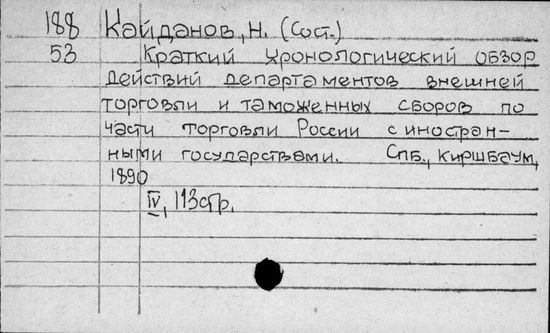 188 Кайданов, Н. (Сост.)
53 Краткий хронологический обзор
действий департаментов внешней
торговли и таможенных сборов по
части торговли России с иностран-
ными государствами. Спб., Киршбаум,
1890
IV, 113 стр.